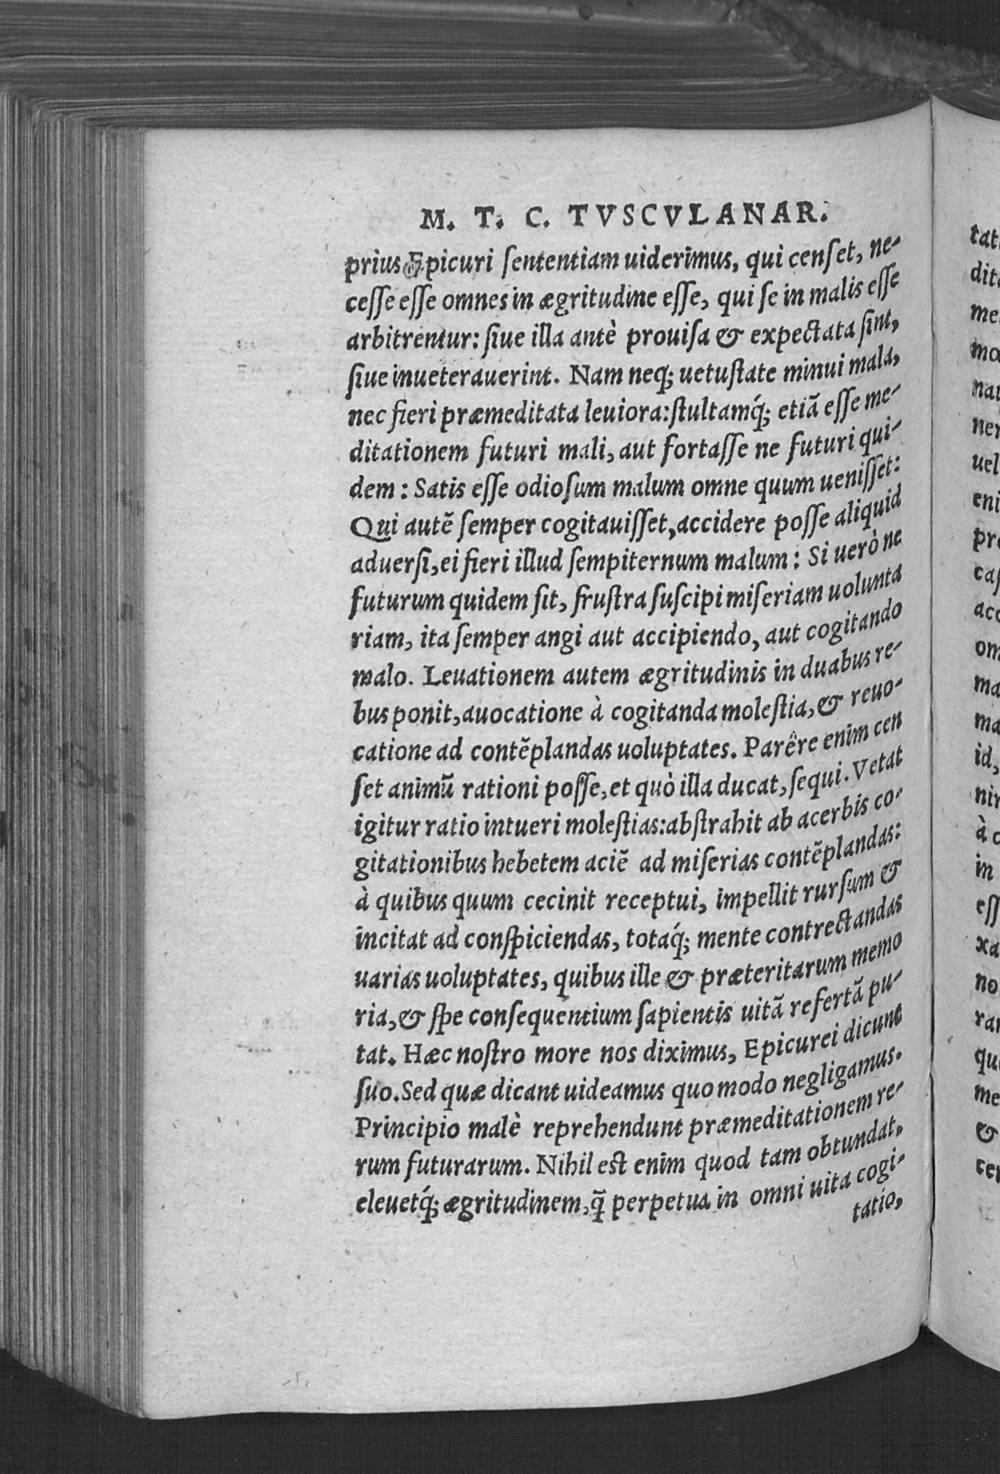 M. T. C. TVSCVLANAR.
prius Epicuri ſententiam uiderimus, qui cenſet, ne-
ceſſe eſſe omnes in ægritudine eſſe, qui ſe in malis eſſe
arbitrentur: ſiue illa antè prouiſa & expectata ſint,
ſiue inueterauerint. Nam neq; uetuſtate minui mala,
nec fieri præmeditata leuiora:ſtultamq́; etiã eſſe me-
ditationem futuri mali, aut fortaſſe ne futuri qui-
dem : Satis eſſe odioſum malum omne quum ueniſſet:
Qui autẽ ſemper cogitauiſſet,accidere poſſe aliquid
aduerſi,ei fieri illud ſempiternum malum : Si uerò ne
futurum quidem ſit, fruſtra ſuſcipi miſeriam uolunta
riam, ita ſemper angi aut accipiendo, aut cogitando
malo. Leuationem autem ægritudinis in duabus re-
bus ponit,auocatione à cogitanda moleſtia,& reuo-
catione ad contẽplandas uoluptates. Parêre enim cen
ſet animũ rationi poſſe,et quò illa ducat,ſequi.Vetat
igitur ratio intueri moleſtias:abſtrahit ab acerbis co-
gitationibus hebetem aciẽ ad miſerias contẽplandas:
à quibus quum cecinit receptui, impellit rurſum &
incitat ad conſpiciendas, totaq́; mente contrectandas
uarias uoluptates, quibus ille & præteritarum memo
ria,& ſpe conſequentium ſapientis uitã refertã pu-
tat. Hæc noſtro more nos diximus, Epicurei dicunt
ſuo.Sed quæ dicant uideamus quomodo negligamus.
Principio malè reprehendunt præmeditationem re-
rum futurarum. Nihil eſt enim quod tam obtundat,
eleuetq́; ægritudinem,q̃ perpetua in omni uita cogi-
tatio,